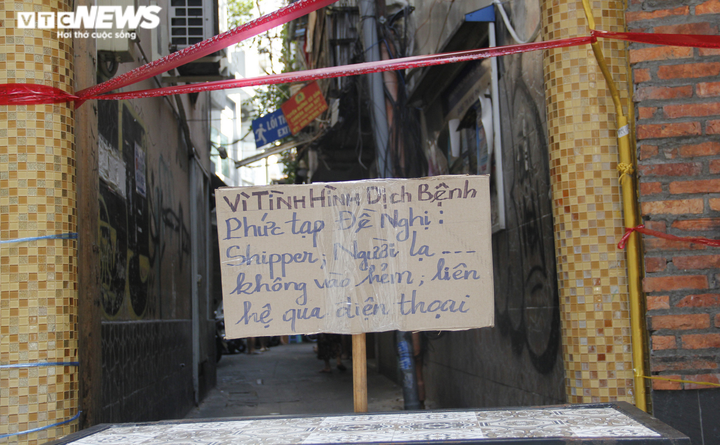 VTCNEWS
Hơi thở cuộc sống
LỐI TH
EXI
Vì Tình Hình Dịch Bệnh
Phức tạp Đề Nghị :
Shipper, Người lạ ---
không vào hẻm, liên
hệ qua điện thoại